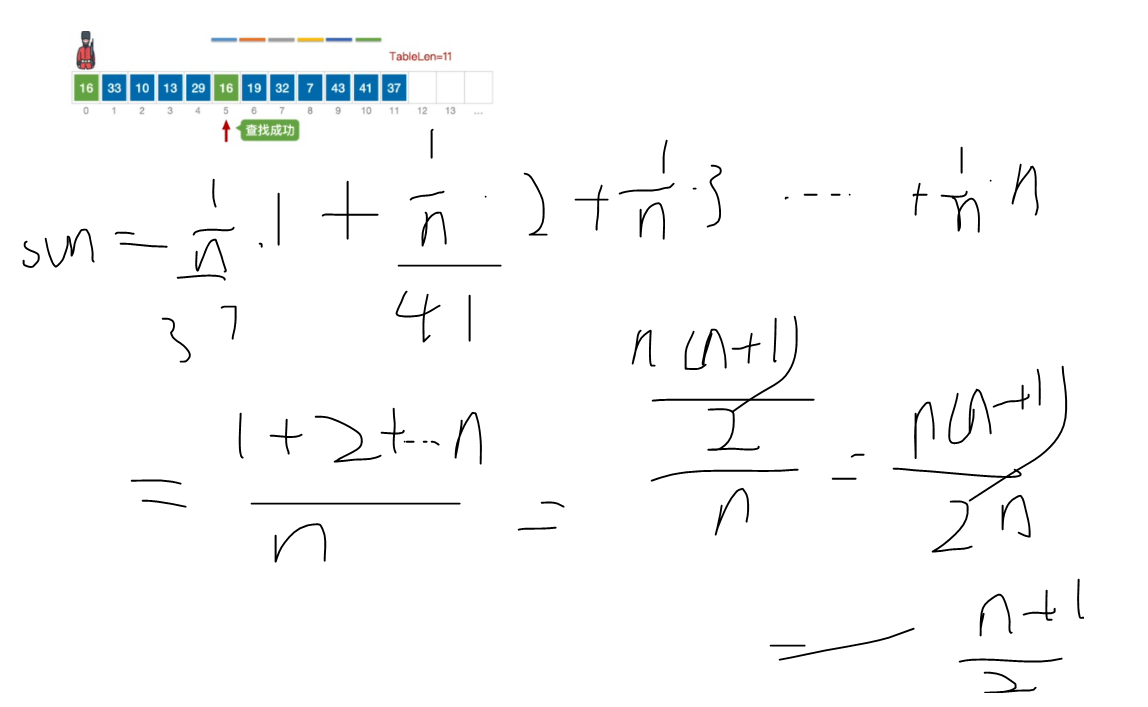 TableLen=11
16 33 10 13 29 16 19 32 7 43 41 37
0 1 2 3 4 5 6 7 8 9 10 11 12 13 ...
查找成功
sun = 1/n · 1 + 1/n · 2 + 1/n · 3 ···· + 1/n · n
37 41
= (1+2+...n)/n = (n(n+1)/2)/n = n(n+1)/2n
= (n+1)/2